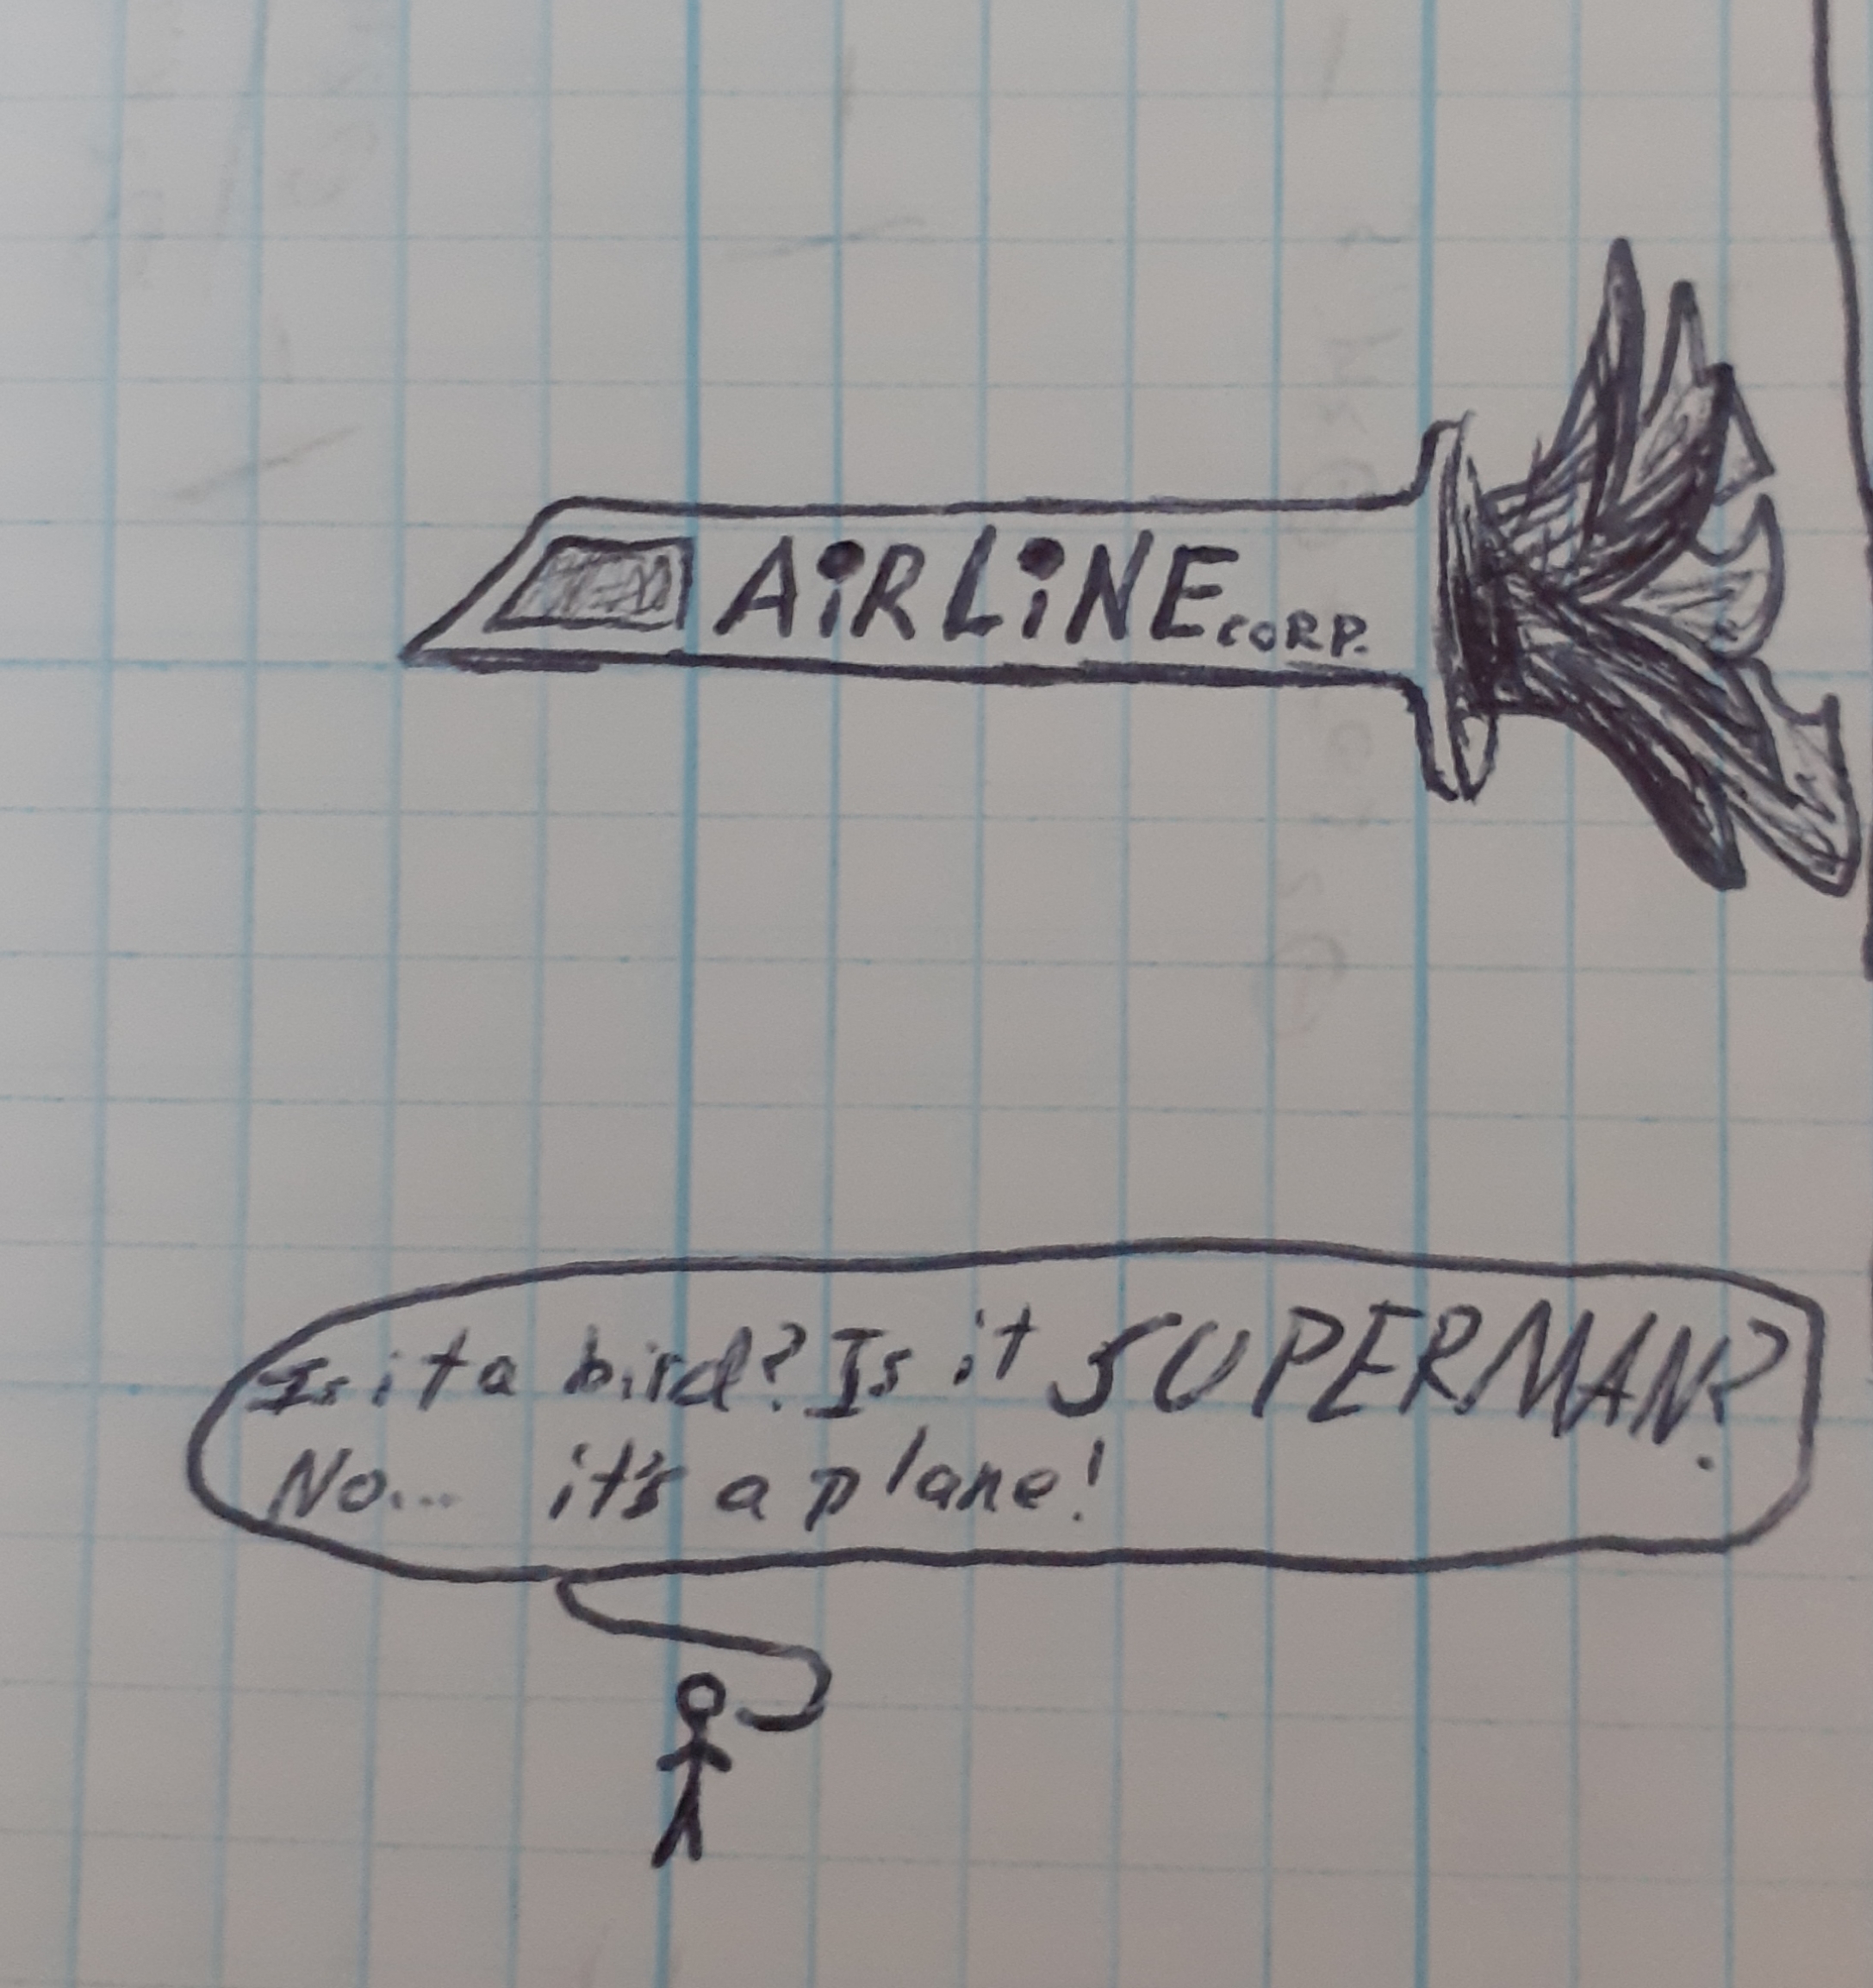 AiRLiNE CORP.
Is it a bird? Is it SUPERMAN?
No... it's a plane!